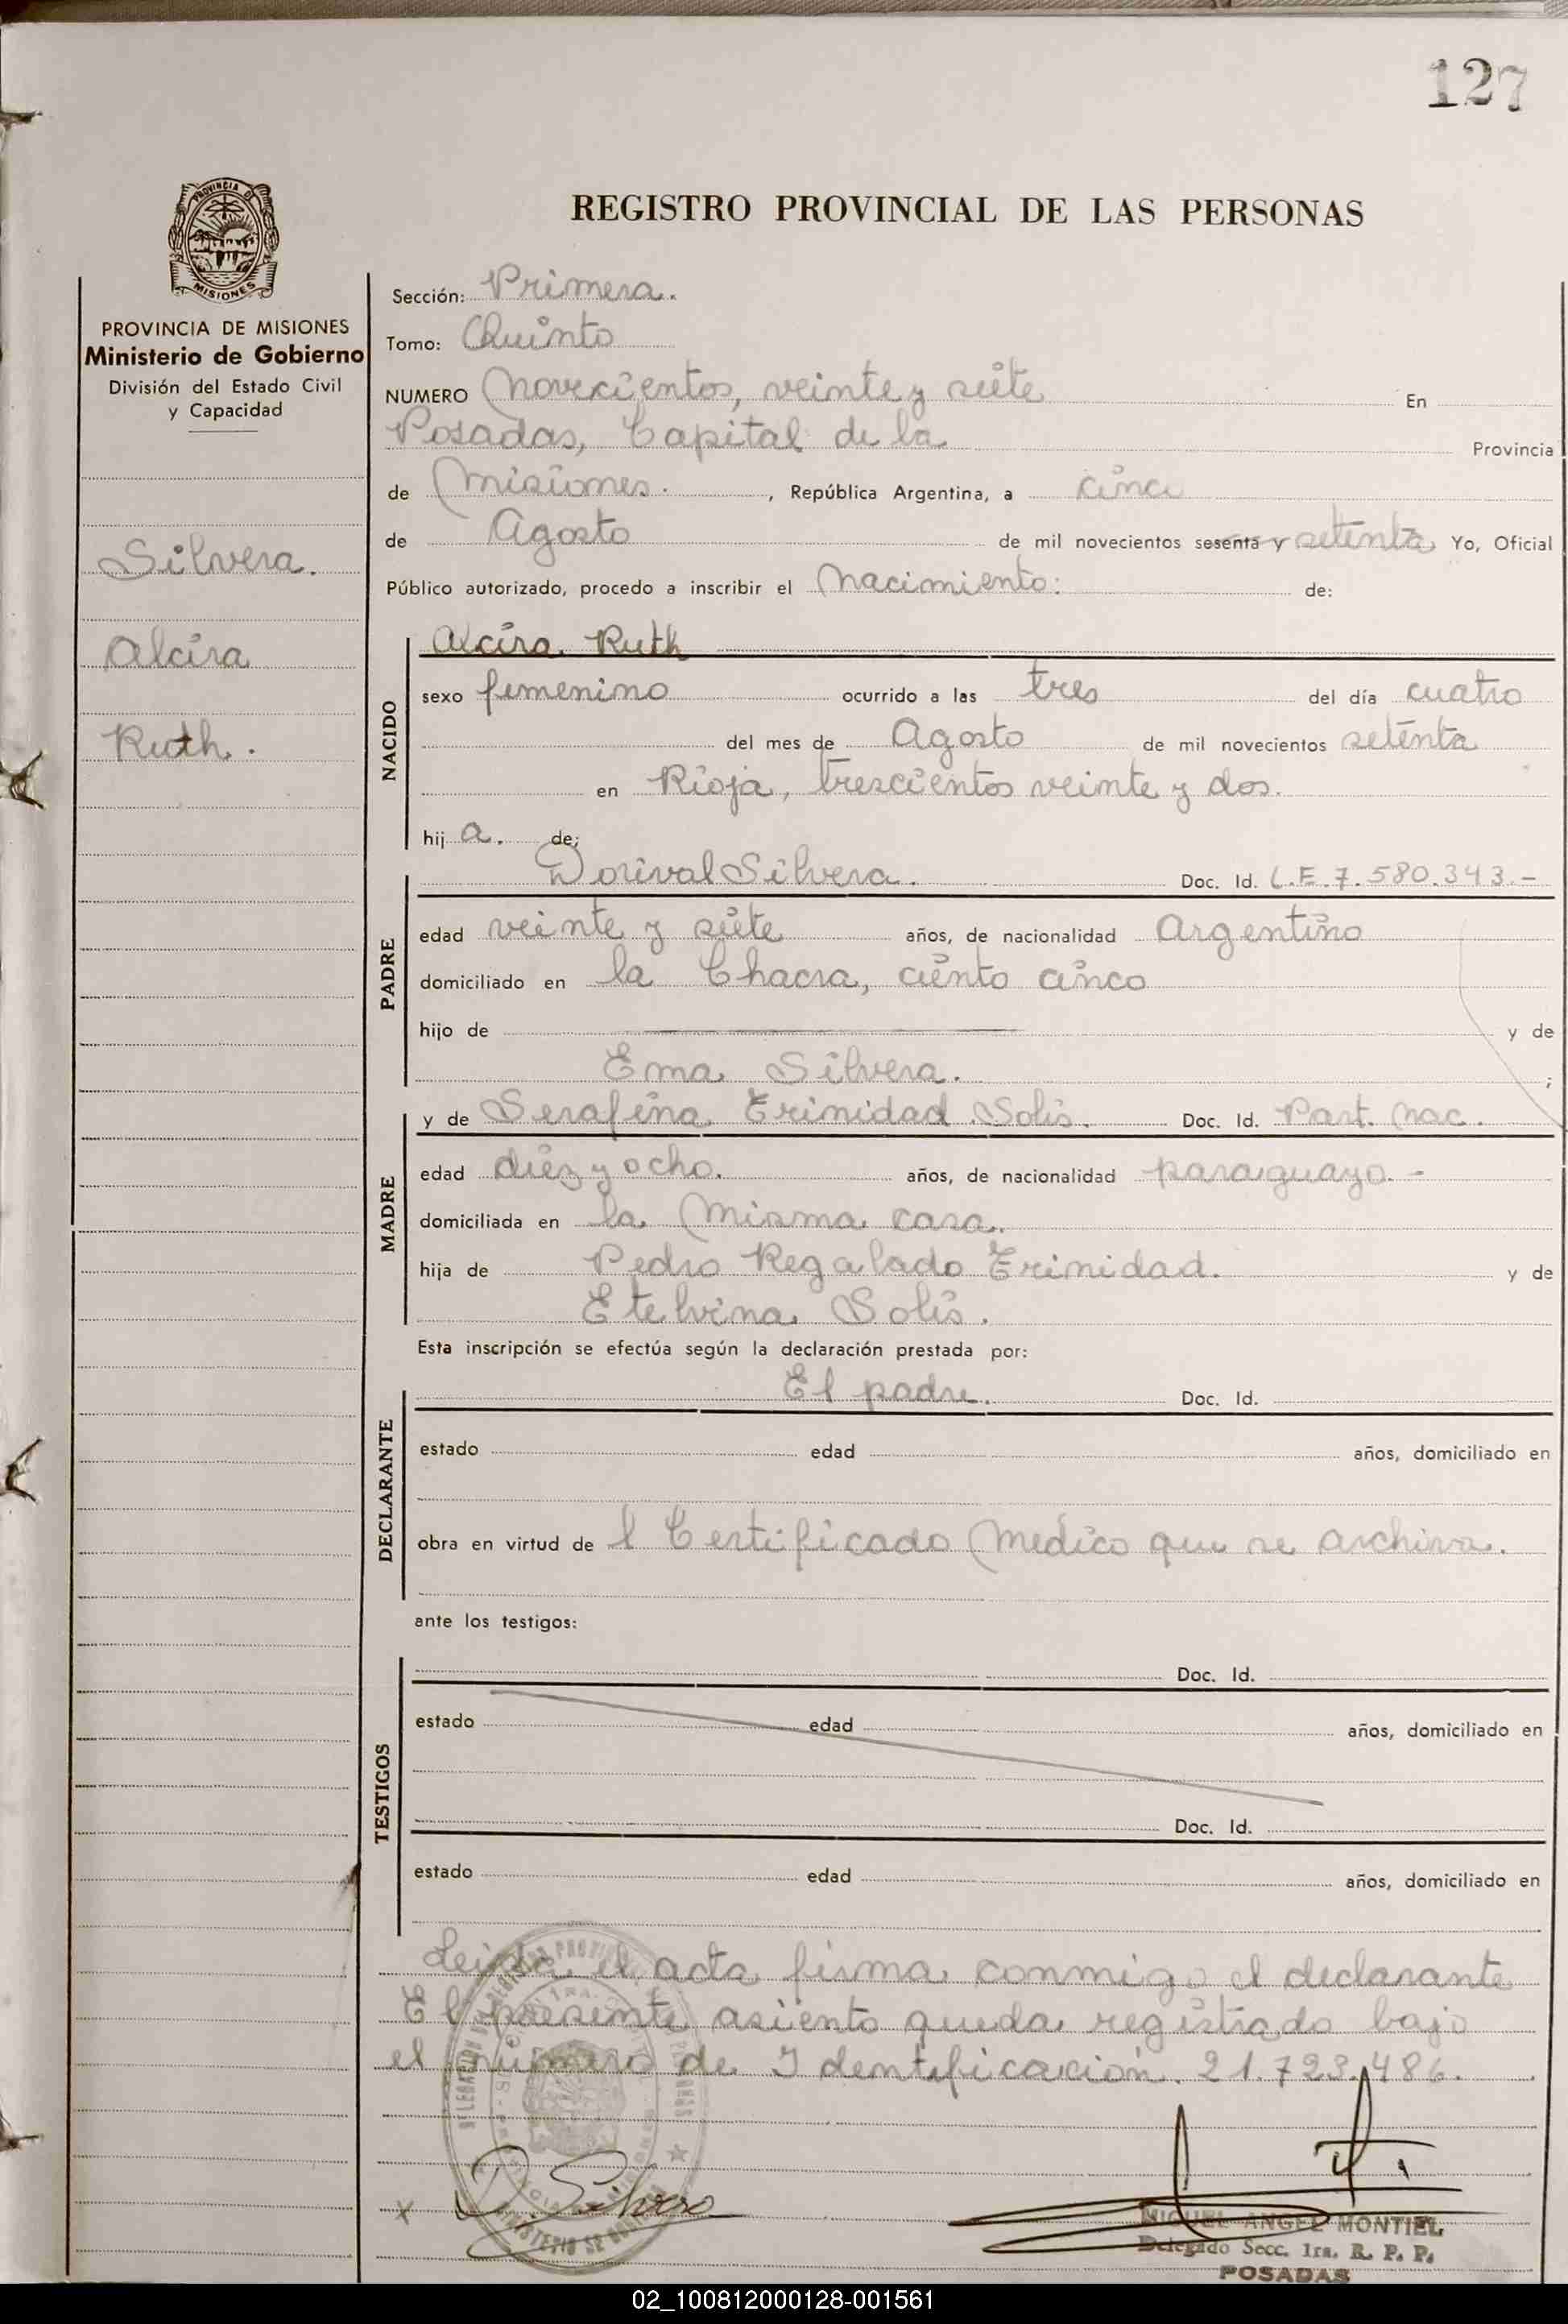 127
PROVINCIA DE
MISIONES
REGISTRO PROVINCIAL DE LAS PERSONAS
PROVINCIA DE MISIONES
Ministerio de Gobierno
División del Estado Civil
y Capacidad
Silvera.
Alcira
Ruth.
Sección: Primera.
Tomo: Quinto
NUMERO Novecientos, veinte y siete En
Posadas, Capital de la Provincia
de Misiones. , República Argentina, a cinco
de Agosto de mil novecientos sesenta y setenta Yo, Oficial
Público autorizado, procedo a inscribir el Nacimiento: de:
NACIDO
Alcira Ruth
sexo femenino ocurrido a las tres del día cuatro
del mes de Agosto de mil novecientos setenta
en Rioja, trescientos veinte y dos.
hij a. de;
PADRE
Dorival Silvera. Doc. Id. L.E.7.580.343.-
edad veinte y siete años, de nacionalidad Argentino
domiciliado en la Chacra, ciento cinco
hijo de y de
Ema Silvera. ;
MADRE
y de Serafina Trinidad Solis. Doc. Id. Part. Nac.
edad diez y ocho. años, de nacionalidad paraguaya.-
domiciliada en la Misma casa.
hija de Pedro Regalado Trinidad. y de
Etelvina Solis.
Esta inscripción se efectúa según la declaración prestada por:
DECLARANTE
El padre. Doc. Id.
estado edad años, domiciliado en
obra en virtud de l Certificado Medico que se archiva.
ante los testigos:
TESTIGOS
Doc. Id.
estado edad años, domiciliado en
Doc. Id.
estado edad años, domiciliado en
Leida el acta firma conmigo el declarante
El presente asiento queda registrado bajo
el número de Identificación. 21.723.486.
D Silvera
MIGUEL ANGEL MONTIEL
Delegado Secc. 1ra. R. P. P.
POSADAS
02_100812000128-001561